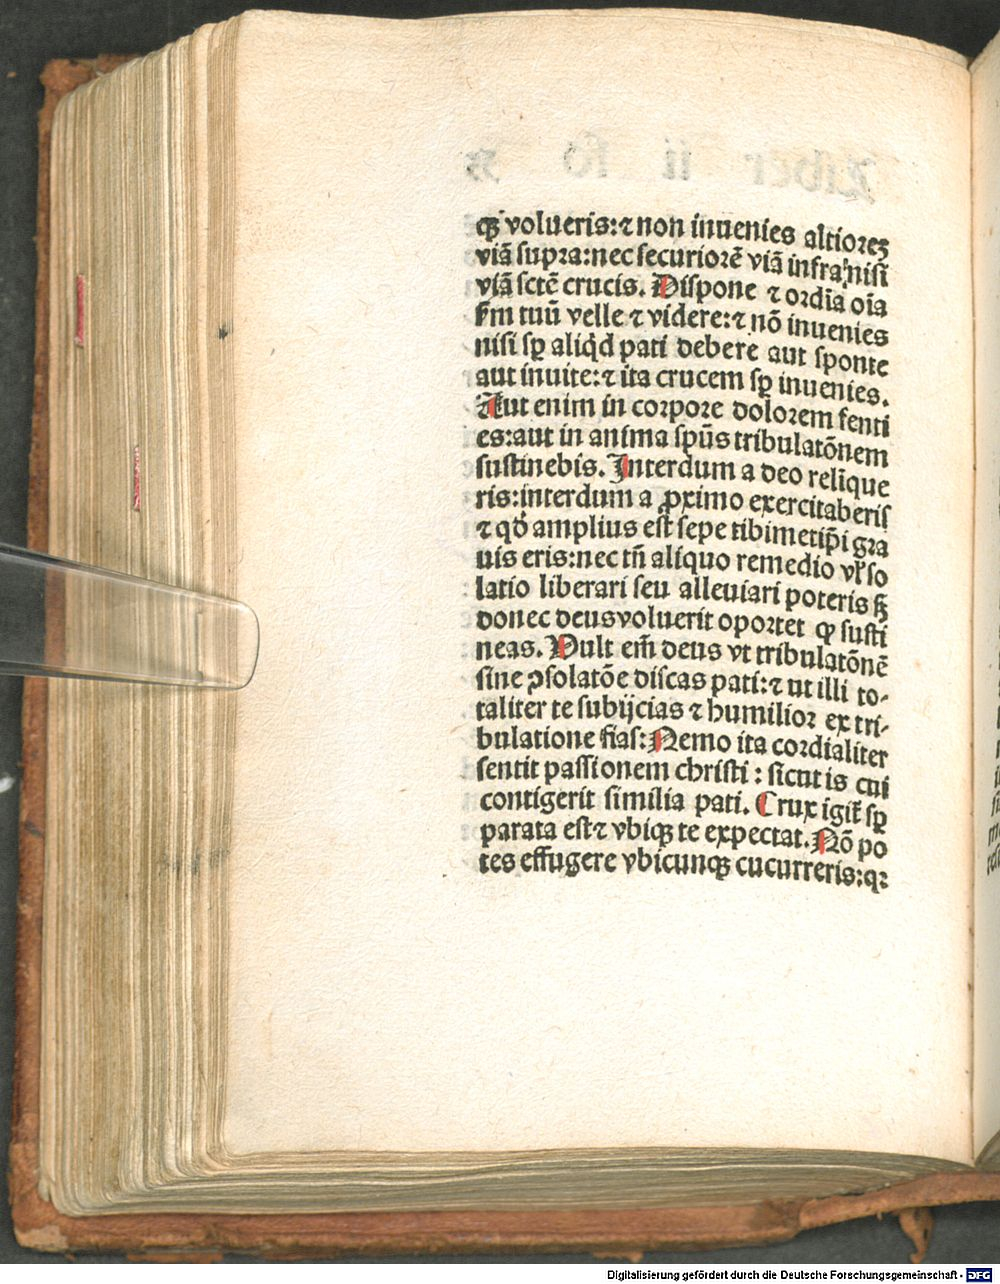 qꝫ volueris:⁊ non inuenies altioreꝫ
viā supra:nec securiorē viā infra,nisi
viā sctē crucis. Dispone ⁊ ordīa oīa
ẜm tuū velle ⁊ videre:⁊ nō inuenies
nisi sꝑ aliqd pati debere aut sponte
aut inuite:⁊ ita crucem sꝑ inuenies.
Aut enim in corpore dolorem senti
es:aut in anima spūs tribulatōnem
sustinebis. Interdum a deo relīque
ris:interdum a ꝓximo exercitaberis
⁊ qđ amplius est sepe tibimetip̄i gra
uis eris:nec tn̄ aliquo remedio vl̓ so
latio liberari seu alleuiari poteris sꝫ
donec deusvoluerit oportet ꝙ susti
neas. Vult em̄ deus vt tribulatōnē
sine ꝯsolatōe discas pati:⁊ ut illi to-
taliter te subijcias ⁊ humilior ex tri-
bulatione fias: Nemo ita cordialiter
sentit passionem christi : sicut is cui
contigerit similia pati. Crux igit̄ sꝑ
parata est⁊ vbiqꝫ te expectat. Nō po
tes effugere vbicunqꝫ cucurreris:qꝛ
Digitalisierung gefördert durch die Deutsche Forschungsgemeinschaft - DFG